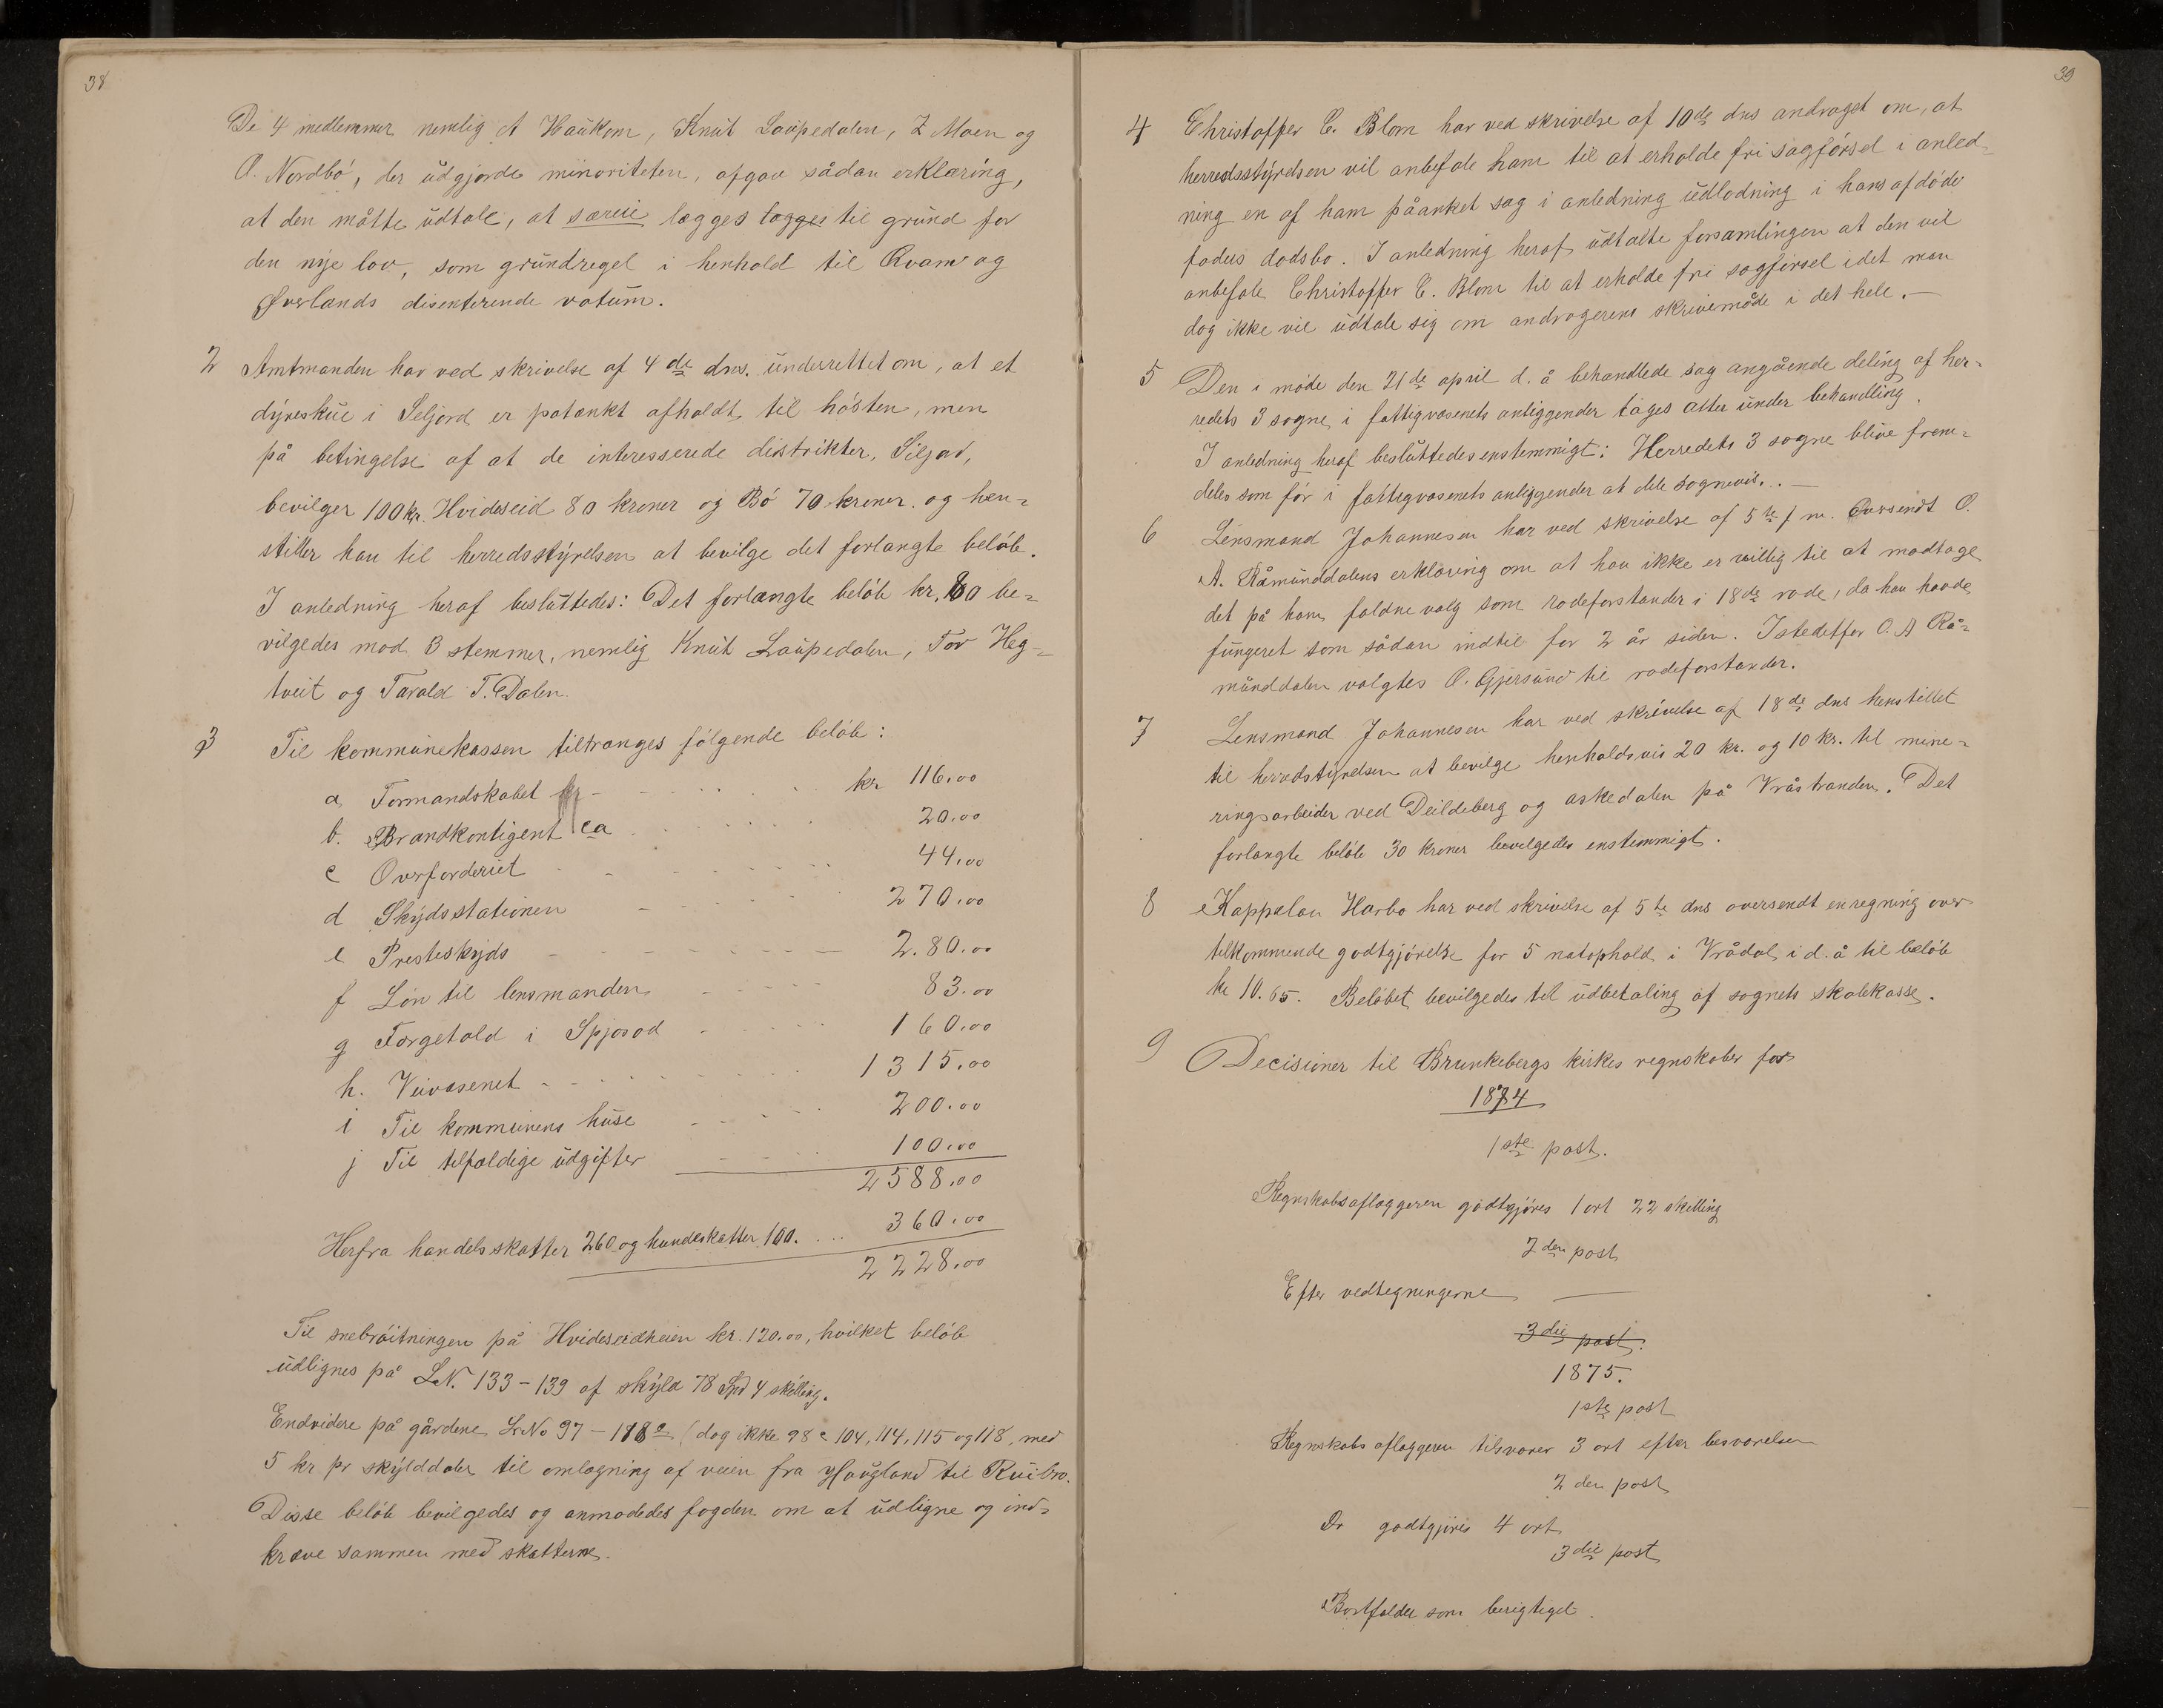 38
De 4 medlemmer nemlig A Haukom, Knut Laupedalen, Z Moen og
O. Nordbö, der udgjorde minoriteten, afgav sådan erklæring,
at den måtte udtale, at særeie lægges lægges til grund for
den nye lov, som grundregel i henhold til Qvam og
Øverlands disenterende votum.
2 Amtmanden har ved skrivelse af 4de dns. underrettet om, at et
dyreskue i Seljord er påtænkt afholdt til hösten, men
på betingelse af at de interesserede distrikter, Siljord,
bevilger 100 kr. Hvideseid 80 kroner og Bö 70 kroner. og hen-
stiller han til herredsstyrelsen at bevilge det forlangte belöb.
I anledning heraf besluttedes: Det forlangte belöb kr. 80 be-
vilgedes mod 3 stemmer, nemlig Knut Laupedalen, Tor Heg-
tveit og Tarald T. Dalen.
3 Til kommunekassen tiltrænges fölgende belöb:
a Formandskabet kr 116.00
b. Brandkontigent ca 20.00
c Overforderiet 44.00
d Skydsstationen 270.00
e Presteskyds 2.80.00
f Lön til lensmanden 83.00
g Færgetold i Spjosod 160.00
h. Veivæsenet 1315.00
i Til kommunens huse 200.00
j Til tilfældige udgifter 100.00
2588.00
Herfra handelsskatter 260 og hundeskatter 100. ... 360.00
2228.00
Til snebröitningen på Hvideseidheien kr. 120.00, hvilket belöb
udlignes på LN. 133-139 af skyld 78 Spd 4 skilling.
Endvidere på gårdene LNo 97-118a (dog ikke 98c 104, 114, 115 og 118, med
5 kr pr skylddaler til omlægning af veien fra Haugland til Ruibro.
Disse belöb bevilgedes og anmodedes fogden om at udligne og ind-
kræve sammen med skatterne.
39
4 Christoffer C. Blom har ved skrivelse af 10de dns andraget om, at
herredsstyrelsen vil anbefale ham til at erholde fri sagförsel i anled-
ning en af ham påanket sag i anledning udlodning i hans afdöde
faders dødsbo. I anledning heraf udtalte forsamlingen at den vil
anbefale Christoffer C. Blom til at erholde fri sagförsel idet man
dog ikke vil udtale sig om andragerens skrivemåde i det hele.-
5 Den i möde den 21de april d. å behandlede sag angående deling af her-
redets 3 sogne i fattigvæsenets anliggender tages atter under behandling.
I anledning heraf besluttedes enstemmigt: Herredets 3 sogne blive frem-
deles som för i fattigvæsenets anliggender at dele sognevis..-
6 Lensmand Johannesen har ved skrivelse af 5te f m. oversendt O.
A. Råmunddalens erklæring om at han ikke er villig til at modtage
det på ham faldne valg som rodeforstander i 18de rode, da han havde
fungeret som sådan indtil for 2 år siden. Istedetfor O. A Rå-
munddalen valgtes O. Gjersund til rodeforstander.
7 Lensmand Johannesen har ved skrivelse af 18de dns henstillet
til herredstyrelsen at bevilge henholdsvis 20 kr. og 10 kr. til mine-
ringsarbeider ved Deildeberg og askedalen på Vråstranden. Det
forlangte belöb 30 kroner bevilgedes enstemmigt.
8 Kappelan Harbo har ved skrivelse af 5te dns oversendt en regning over
tilkommende godtgjörelse for 5 natophold i Vrådal i d. å til belöb
kr 10.65. Belöbet bevilgedes til udbetaling af sognets skolekasse.
9 Decisioner til Brunkebergs kirkes regnskaber for
1874
1ste post.
Regnskabsaflæggeren godtgjöres 1 ort 22 skilling
2den post
Efter vedtegningerne
3die post.
1875.
1ste post
Regnskabsaflæggeren tilsvarer 3 ort efter besvarelsen
2 den post
Do godtgjöres 4 ort
3die post
Bortfalder som berigtiget.